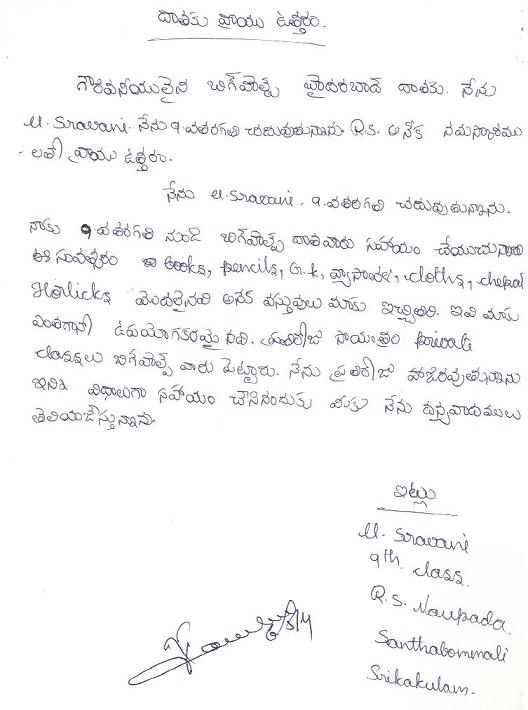 దాతకు వ్రాయు ఉత్తరం.
గౌరవనీయులైన బిగ్‌హెల్ప్ హైదరబాద్ దాతకు. నేను
U. Sravani నేను 9. వతరగతి చదువుతున్నాను. R.S. అనేక నమస్కారము
-లతో వ్రాయు ఉత్తరం.
నేను U. Sravani. 9. వతరగతి చదువుతున్నాను.
నాకు 9. వతరగతి నుండి బిగ్‌హెల్ప్ దాతవారు సహాయం చేయుచున్నారు
ఈ సంవత్సరం books, pencils, G.K, clothes, chepal
Horlicks మొదలైనవి అనేక వస్తువులు మాకు ఇచ్చితిరి. ఇవి మాకు
ఎంతగానో ఉపయోగకరమైనవి. ప్రతిరోజు సాయంత్రం private
classలు బిగ్‌హెల్ప్ వారు పెట్టారు. నేను ప్రతిరోజు హాజరవుతున్నాను
ఇన్ని విధాలుగా సహాయం చేసినందుకు మీకు నేను ధన్యవాదములు
తెలియజేస్తున్నాను.
ఇట్లు
U. Sravani
9th class
R.S. Naupada.
Santhabommali
Srikakulam.